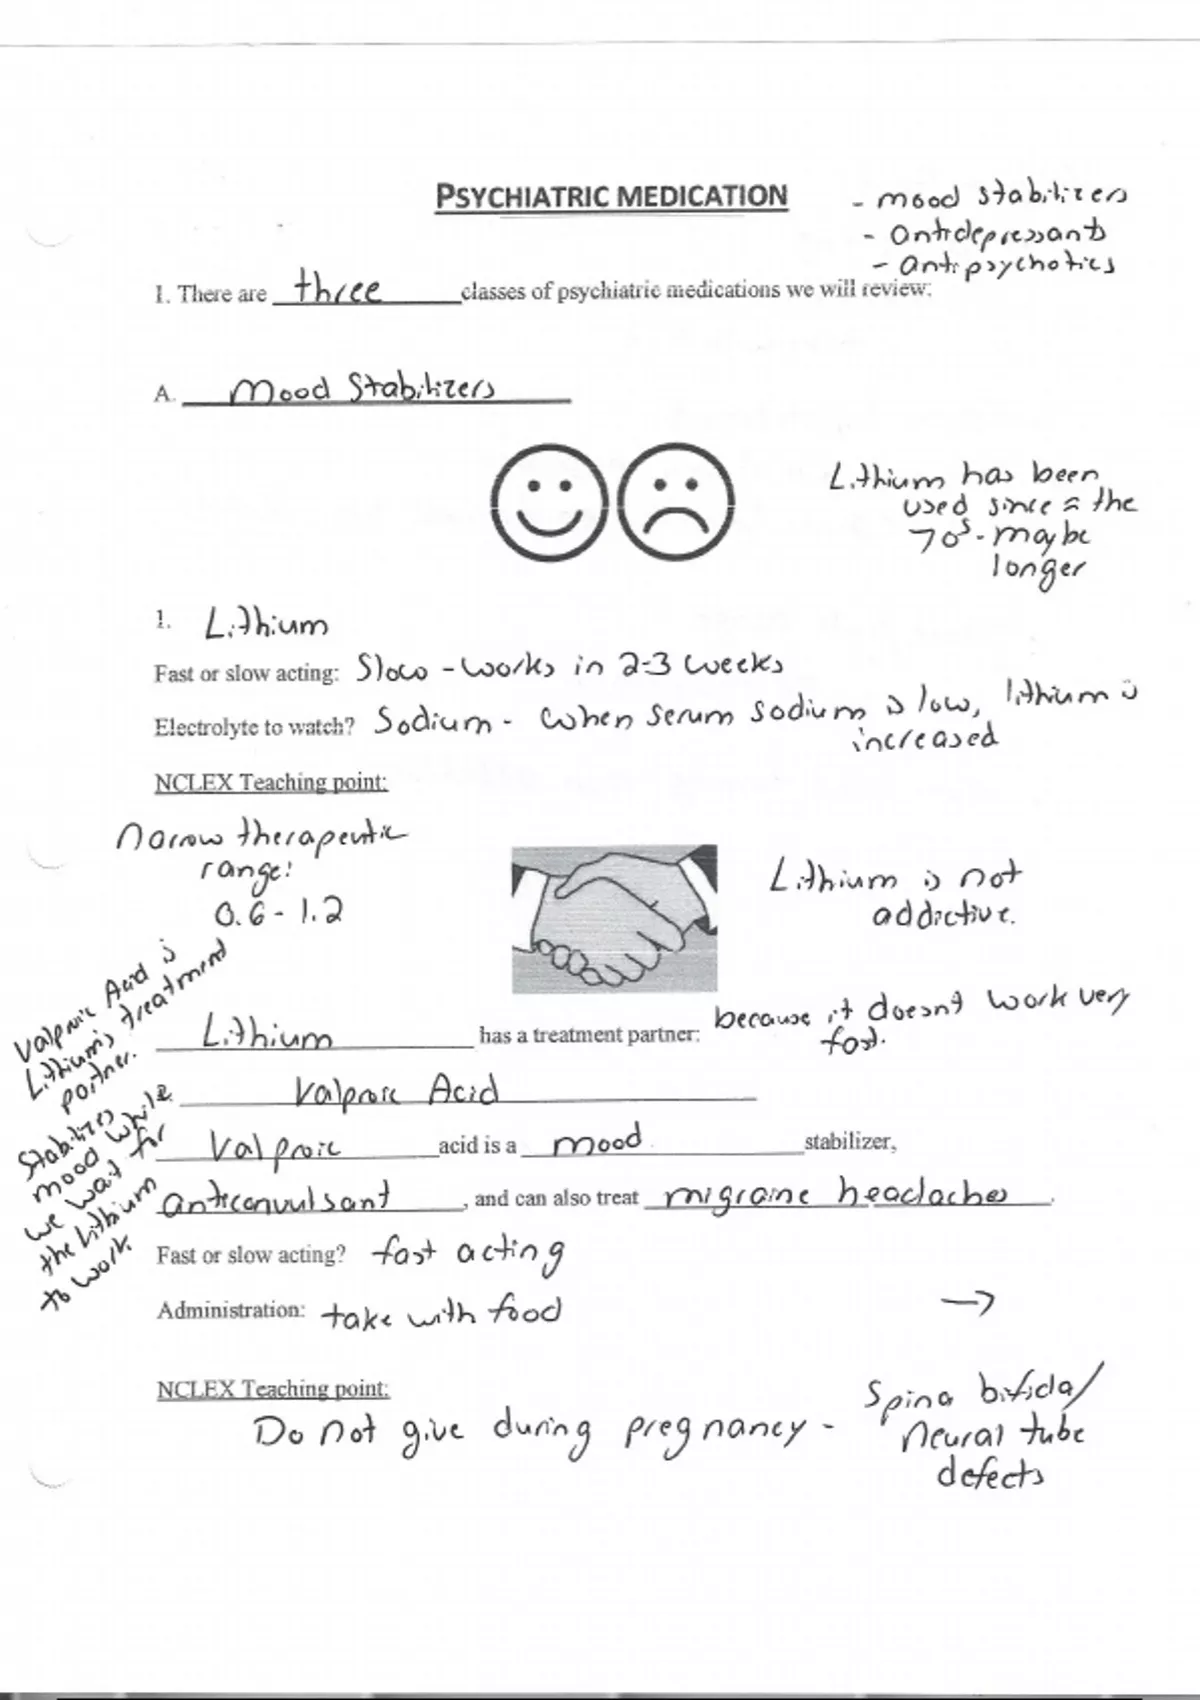 PSYCHIATRIC MEDICATION
- mood stabilizers
- antidepressants
- antipsychotics
1. There are three classes of psychiatric medications we will review:
A. Mood Stabilizers
Lithium has been
used since ≈ the
70s - maybe
longer
1. Lithium
Fast or slow acting: Slow - works in 2-3 weeks
Electrolyte to watch? Sodium - when serum sodium is low, lithium is
increased
NCLEX Teaching point:
narrow therapeutic
range:
0.6 - 1.2
Lithium is not
addictive.
Valproic Acid is
Lithium's treatment
partner.
Stabilizes
mood while
we wait for
the lithium
to work
Lithium has a treatment partner: because it doesn't work very
fast.
Valproic Acid
Valproic acid is a mood stabilizer,
anticonvulsant, and can also treat migraine headaches.
Fast or slow acting? fast acting
Administration: take with food →
NCLEX Teaching point:
Do not give during pregnancy - Spina bifida/
neural tube
defects